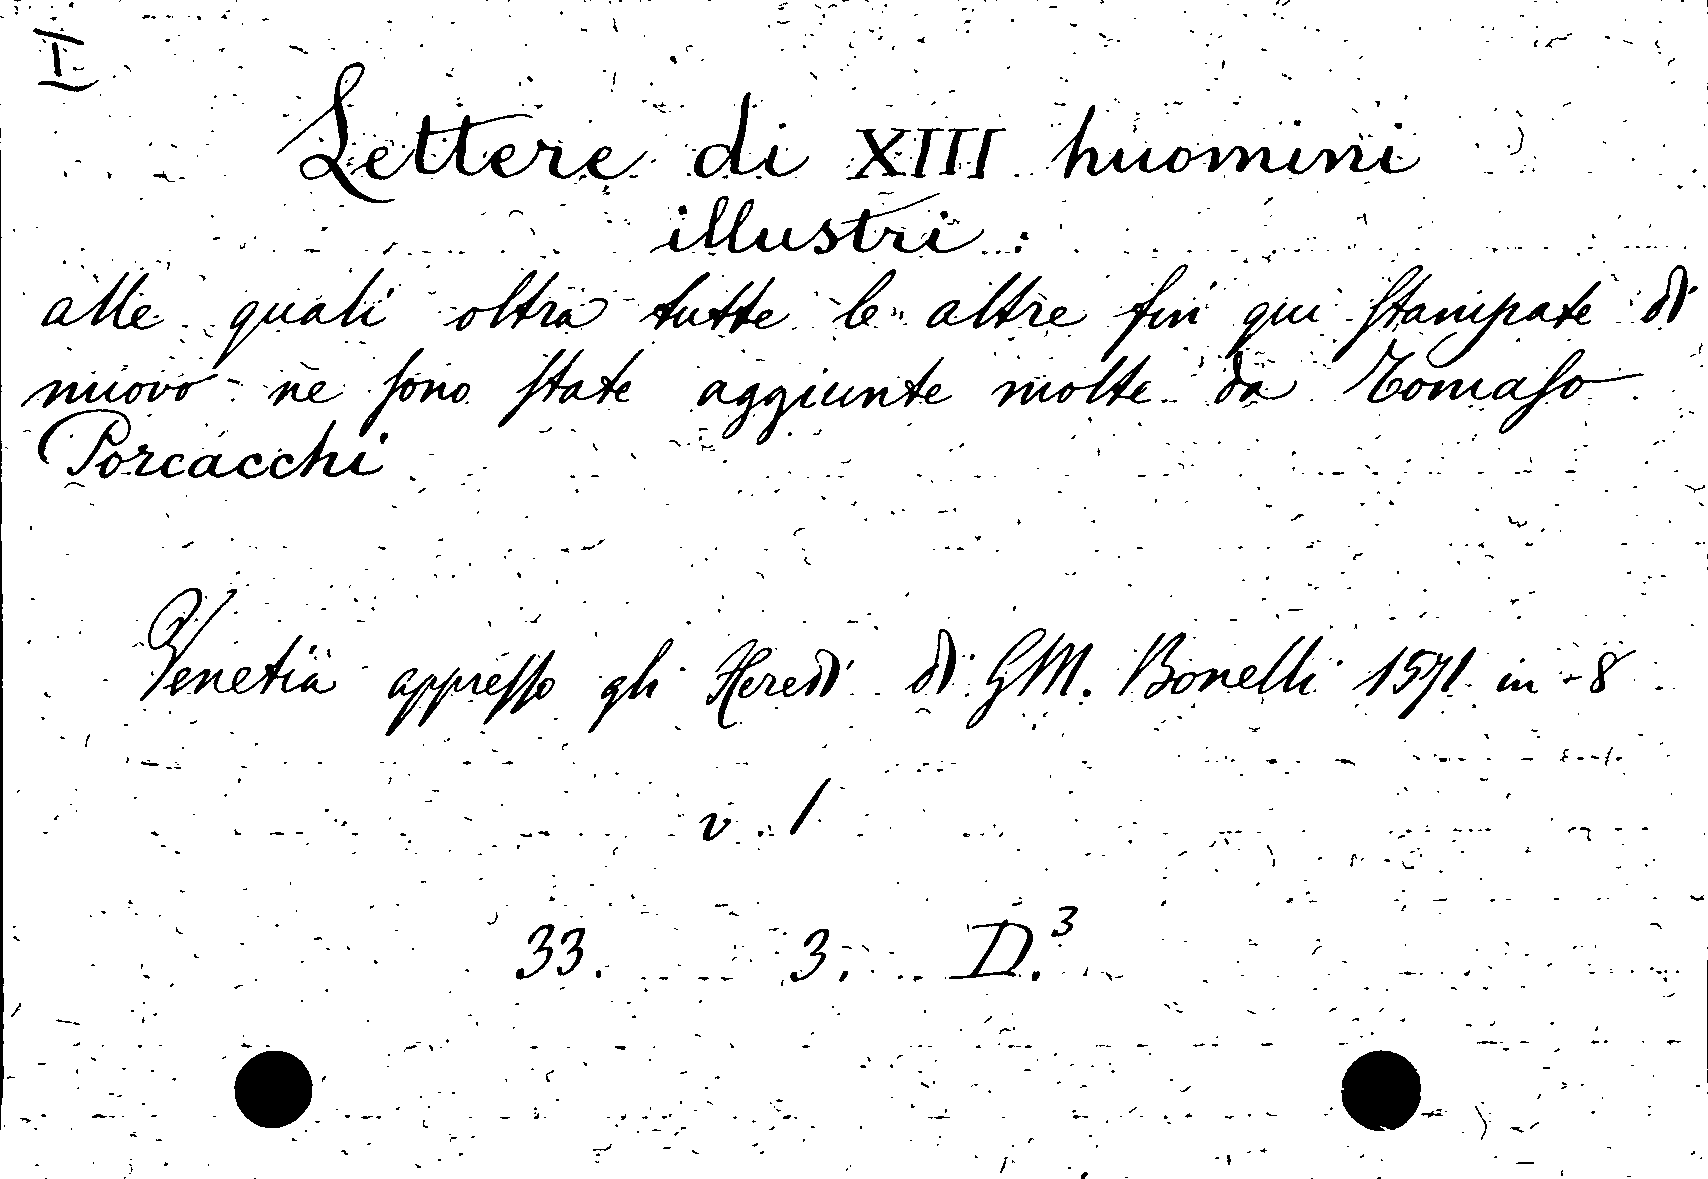 I
Lettere di XIII huomini
illustri :
alle quali oltra tutte le altre fin qui stampate di
nuovo ne sono state aggiunte molte da Tomaso
Porcacchi
Venetia appresso gli Heredi di GM. Bonelli 1571 in -8
v. 1
33. 3. D.3